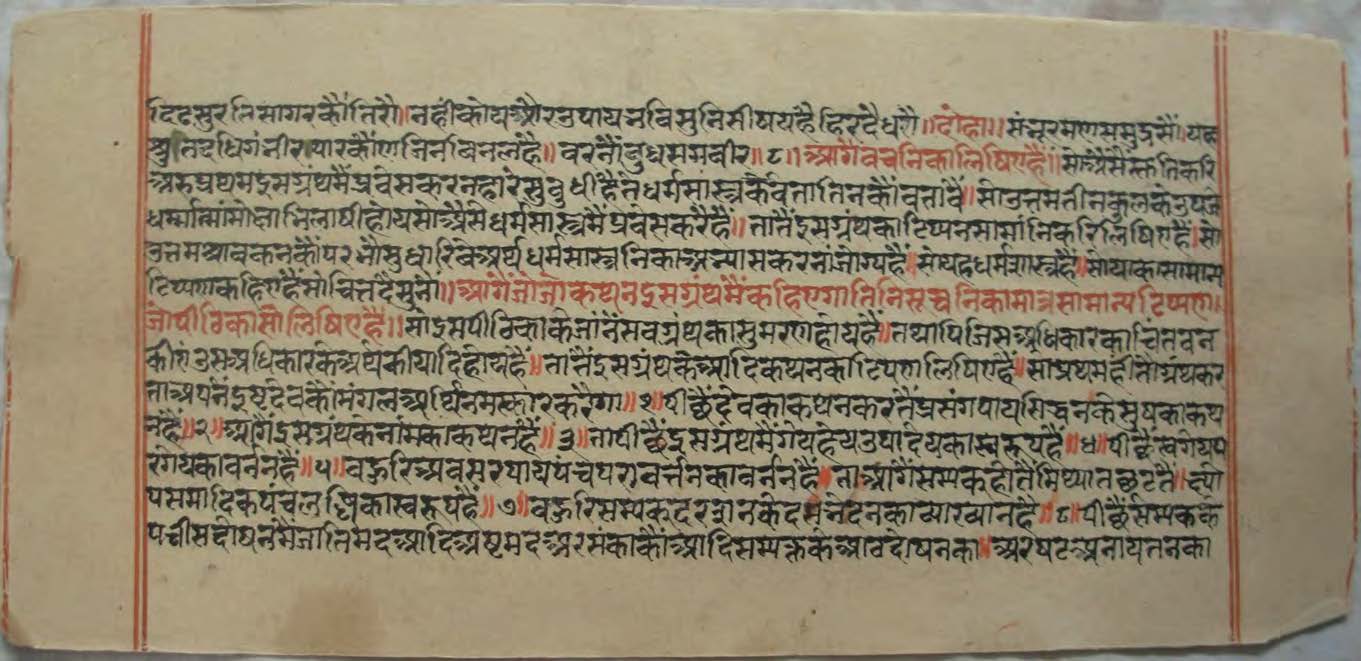 दिढसुरनिसागरकौ तिरौ॥ नहीं कोय और उपाय भवि सुनि सीष यह हिरदै धरौ॥ दोहा॥ संसूरमण समुद्रसौं॥ यह
श्रुतदधिगंभीर पारकौं ण जिनविन लहै॥ वरनौं बुधसम वीर॥८॥ आगैं वचनिका लिषिए है॥ सो असैसैं
अरु प्रथम इस ग्रंथमैं प्रवेस करनहारे सुबुधी है ते धर्मसास्त्रके वेता तिनकौं वतावै॥ सो उतमतीनकुलके उपजे
धर्मात्मा मोक्षाभिलाषी होय सो असे धर्मसास्त्रमैं प्रवेस करै है॥ तातैं इस ग्रंथका टिप्पन सामानि करि लिषिए है॥ सो
उतम श्रावकनकौं परभौ सुधारिवे अर्थ धर्मसास्त्रनिका अभ्यास करना जोग्य है॥ सो यह धर्मशास्त्र है॥ सो याका सामान्य
टिप्पण कहिए है सो चित्त दे सुनौ॥ आगैं जो जो कथन इस ग्रंथमैं कहिएगा तिनि सूचनिका मात्र सामान्य टिप्पण॥
जो पीठिका सौ लिषिए है॥ सो इस पीठिका के जांनें सव ग्रंथका सुमरण होय है॥ तथापि जिस अधिकारका चितवन
कीएं उस अधिकारके अर्थ की यादि होय है॥ तातैं इस ग्रंथके आदि कथनका टिपण लिषिए है॥ सो प्रथम ही तो ग्रंथकर
ता अपने इष्टदेवकौं मंगल अर्थि नमस्कार करैगा॥१॥ पीछैं देवका कथन करतैं प्रसंग पाय सिद्धनके सुषका कथ
न है॥२॥ आगैं इस ग्रंथके नामका कथन है॥३॥ ता पीछैं इस ग्रंथमैं गेय हेय उपादेयका स्वरूप है॥४॥ पीछैं स्वगेय प
रगेयका वर्नन है॥५॥ वहुरि अवसर पाय पंचपरावर्त्तनका वर्नन है॥ ता आगैं सम्यक होतैं मिथ्यात छूटतैं॥
पसमादिक पंचलब्धिका स्वरूप है॥७॥ वहुरि सम्यकदरशनके दस भेदनका व्याख्यान है॥८॥ पीछैं सम्यकके
पचीस दोषनमैं जातिमद आदि अष्टमद अर संकाकौं आदि सम्यक्तके आठ दोषनका॥ अर षट अनायतनका